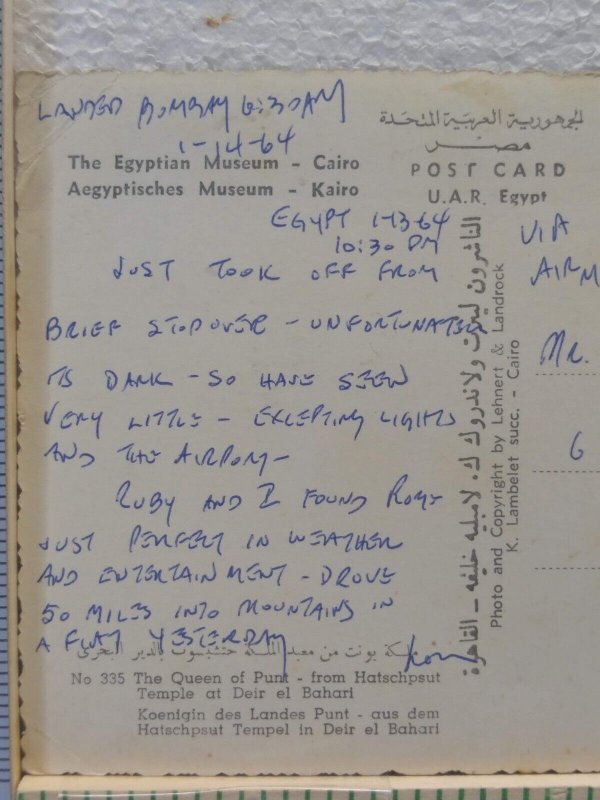 LANDED BOMBAY 6:30AM
1-14-64
الجمهورية العربية المتحدة
مصر
The Egyptian Museum - Cairo
Aegyptisches Museum - Kairo
POST CARD
U.A.R. Egypt
EGYPT 1-13-64
10:30 PM
JUST TOOK OFF FROM
BRIEF STOPOVER - UNFORTUNATELY
ITS DARK - SO HAVE SEEN
VERY LITTLE - EXCEPTING LIGHTS
AND THE AIRPORT-
RUBY AND I FOUND ROME
JUST PERFECT IN WEATHER
AND ENTERTAINMENT - DROVE
50 MILES INTO MOUNTAINS IN
A FIAT YESTERDAY
ملكة بونت من معبد الملكة حتشبسوت بالدير البحرى
No 335 The Queen of Punt - from Hatschpsut
Temple at Deir el Bahari
Koenigin des Landes Punt - aus dem
Hatschpsut Tempel in Deir el Bahari
الناشرون لينرت ولاندروك ك. لامبليه خليفه - القاهرة
Photo and Copyright by Lehnert & Landrock
K. Lambelet succ. - Cairo
VIA
AIRM
MR.
6